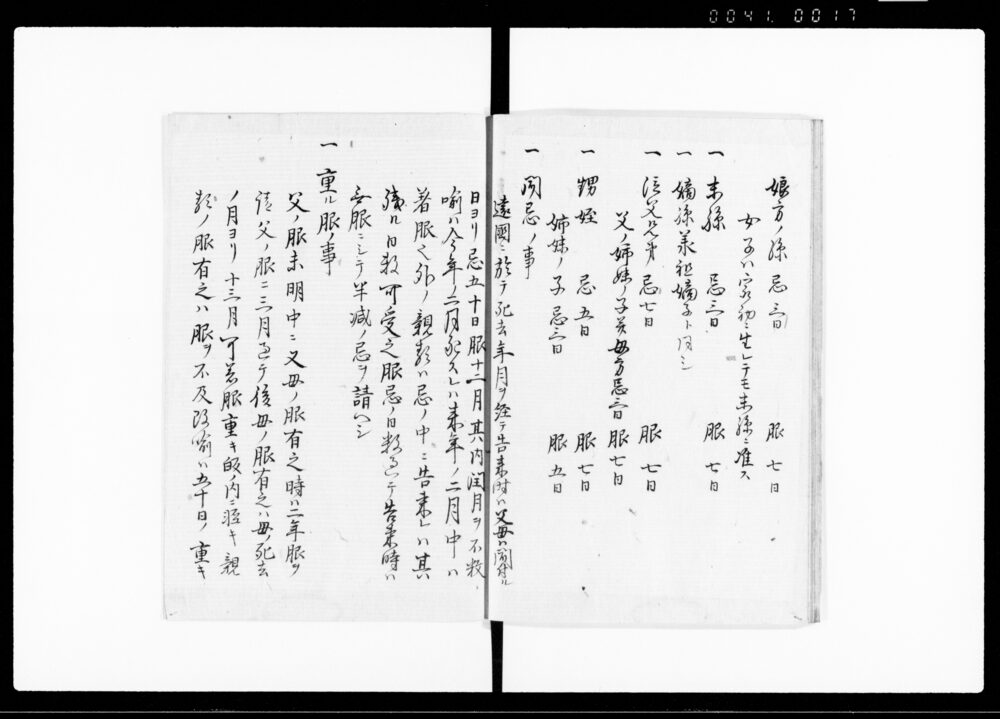 0041 0017
娘方ノ孫 忌三日 服七日
女子ハ最初ニ生レテモ末孫ニ准ス
一 末孫 忌三日 服七日
一 嫡孫承祖嫡子ト同シ
一 従父兄弟 忌七日 服七日
父ノ姉妹ノ子并母方忌三日 服七日
一 甥姪 忌五日 服七日
姉妹ノ子 忌三日 服五日
一 聞忌ノ事
遠國ニ於テ死去年月ヲ経テ告来時ハ父母ハ聞付ル
日ヨリ忌五十日服十二月其内閏月ヲ不数
喩ハ今年ノ二月死スレハ来年ノ二月中ハ
着服之外ノ親類ハ忌ノ中ニ告来レハ其
残ル日数可受之服忌ノ日数過テ告来時ハ
無服ニシテ半減ノ忌ヲ請ヘシ
一 重ル服ノ事
父ノ服未明中ニ又母ノ服有之時ハ二年服ヲ
請父ノ服二三月過テ後母ノ服有之ハ母ノ死去
ノ月ヨリ十三月可着服重キ服ノ内ニ軽キ親
類ノ服有之ハ服ヲ不及改喩ハ五十日ノ重キ